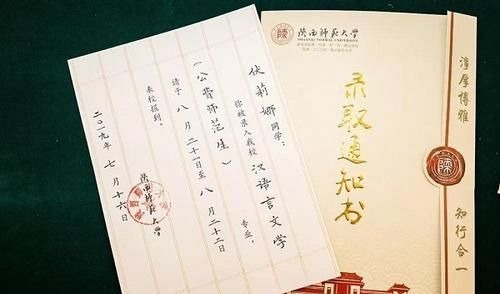 伏莉娜同学：
你被录入我校 汉语言文学
（公费师范生）专业，
请于 八月二十一日至 八月二十二日
来校报到。
陕西师范大学
二〇一九年 七月十六日
陕西师范大学
SHAANXI NORMAL UNIVERSITY
录取通知书
淳厚博雅
知行合一